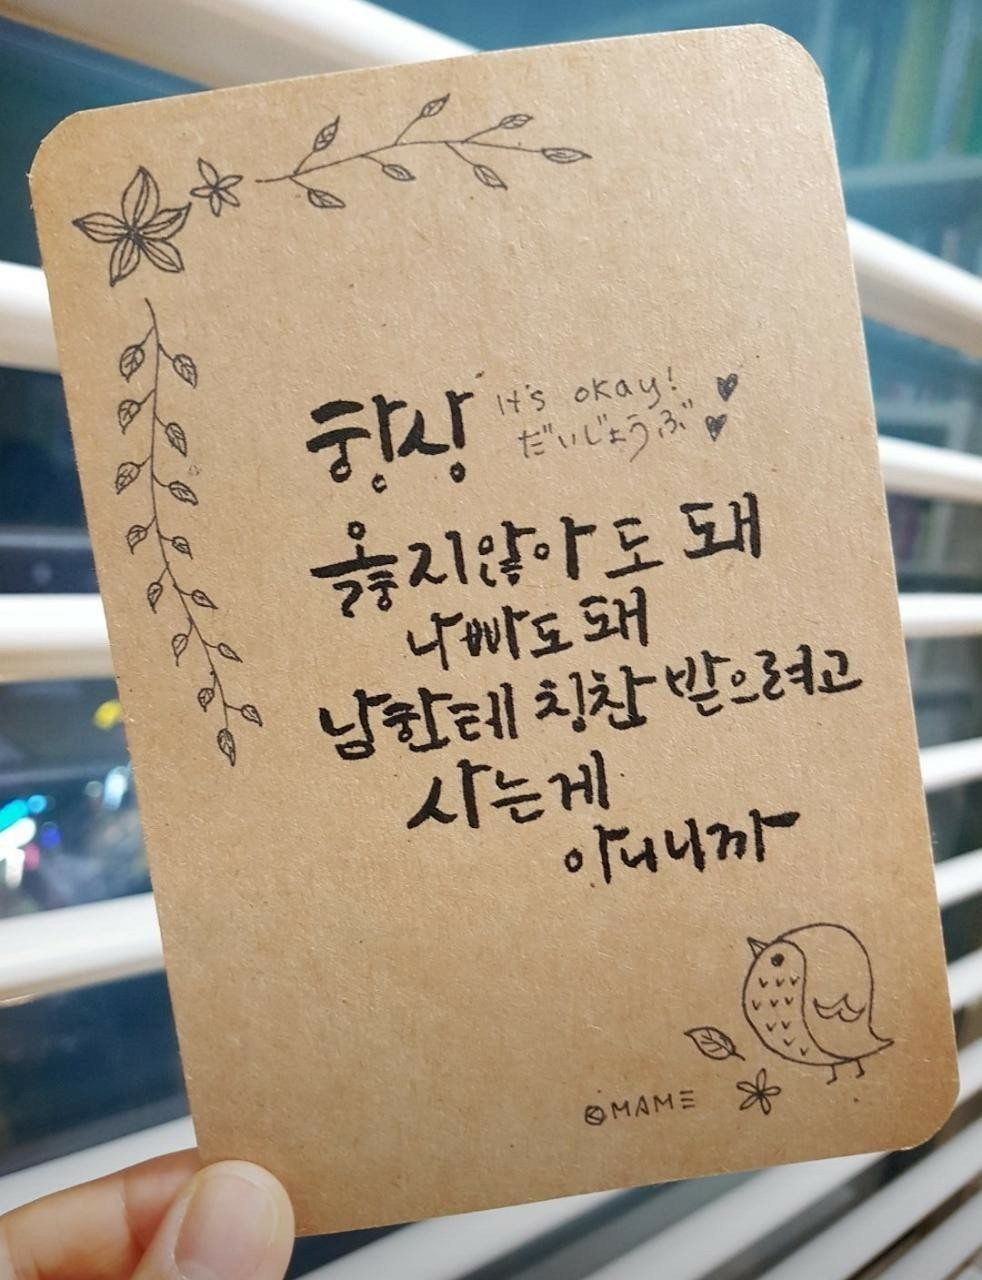 항상 It's okay!
だいじょうぶ
옳지않아도 돼
나빠도 돼
남한테 칭찬 받으려고
사는게
아니니까
MAME